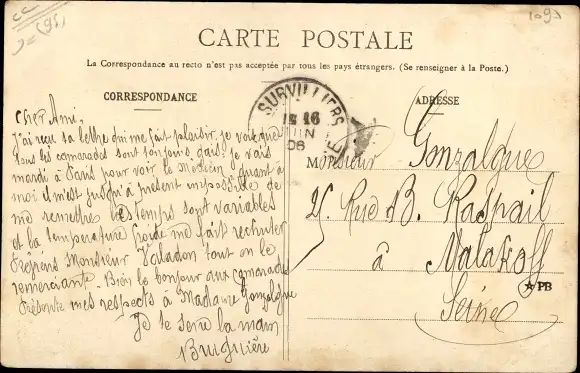 CARTE POSTALE
La Correspondance au recto n'est pas acceptée par tous les pays étrangers. (Se renseigner à la Poste.)
CORRESPONDANCE
Cher Ami,
J'ai reçu sa lettre qui me fait plaisir, je vois que
tous les camarades sont toujours gais. Je vais
mardi à Paris pour voir le Médecin quant à
moi il m'est jusqu'à présent impossible de
me remettre les temps sont variables
et la température froide me fait
Monsieur Valadon tout en le
remerciant. Bien le bonjour aux camarades
Présente mes respects à Madame Gonzalgue
Je te serre la main
Buiguière
SURVILLIERS
16
JUIN
06
ADRESSE
Monsieur Gonzalgue
25. Rue B. Raspail
à Malakoff
Seine
PB